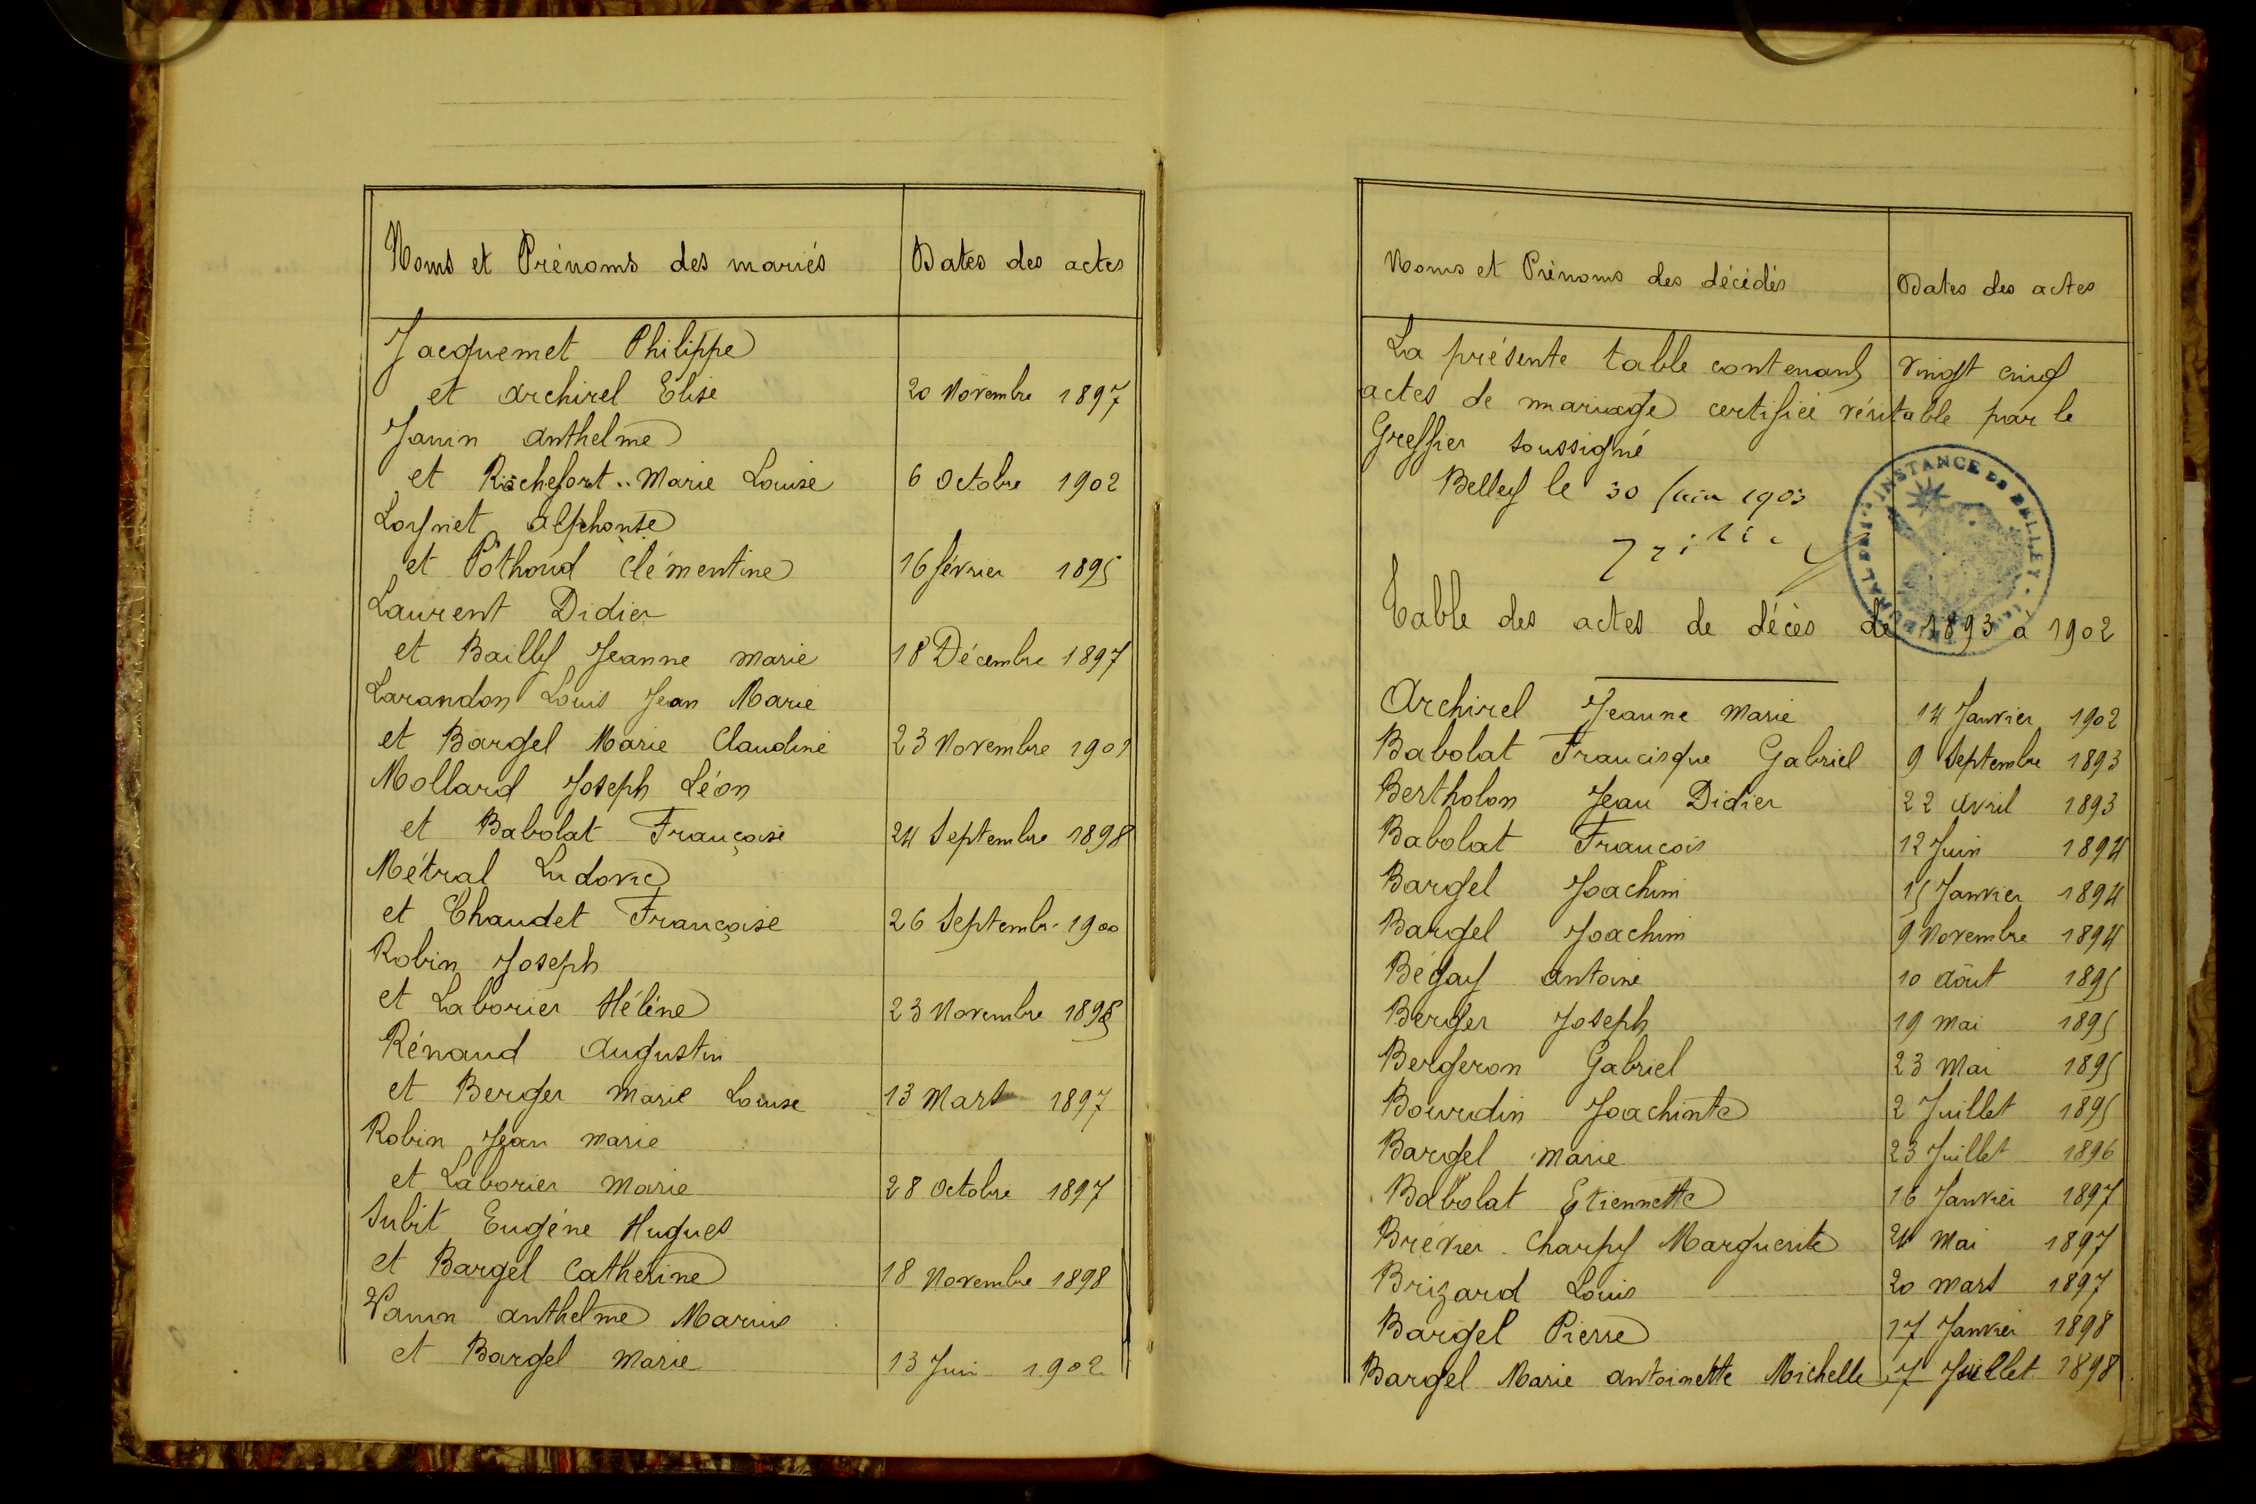 Noms et Prénoms des mariés Dates des actes
Jacquemet Philippe
et Archirel Elise 20 Novembre 1897
Janin Anthelme
et Rochefort Marie Louise 6 Octobre 1902
Loynet Alphonse
et Pothoud Clémentine 16 février 1895
Laurent Didier
et Bailly Jeanne Marie 18 Décembre 1897
Larandon Louis Jean Marie
et Bargel Marie Claudine 23 Novembre 1901
Mollard Joseph Léon
et Babolat Françoise 24 Septembre 1898
Métral Ludovic
et Chaudet Françoise 26 Septembr. 1900
Robin Joseph
et Laborier Hélène 23 Novembre
Rénaud Augustin
et Berger Marie Louise 13 Mars 1897
Robin Jean Marie
et Laborier Marie 28 Octobre 1897
Subit Eugéne Hugues
et Bargel Catherine 18 Novembre 1898
Vanin Anthelme Marius
et Bargel Marie 13 Juin 1902
Noms et Prénoms des décédés Dates des actes
La présente table contenant vingt cinq
actes de mariage certifiée véritable par le
Greffier soussigné
Belley le 30 Juin 1903
INSTANCE DE BELLEY
Table des actes de décès de 1893 à 1902
Archirel Jeanne Marie 14 Janvier 1902
Babolat Francisque Gabriel 9 Septembre 1893
Bertholon Jean Didier 22 Avril 1893
Babolat Francois 12 Juin 1894
Bargel Joachim 15 Janvier 1894
Bargel Joachim 9 Novembre 1894
Bégay Antoine 10 Août 1895
Berger Joseph 19 Mai 1895
Bergeron Gabriel 23 Mai 1895
Bourdin Joachinte 2 Juillet 1895
Bargel Marie 23 Juillet 1896
Babolat Etiennette 16 Janvier 1897
Brévier Charpy Marguerite 24 Mai 1897
Brizard Louis 20 Mars 1897
Bargel Pierre 17 Janvier 1898
Bargel Marie Antoinette Michelle 7 Juillet 1898